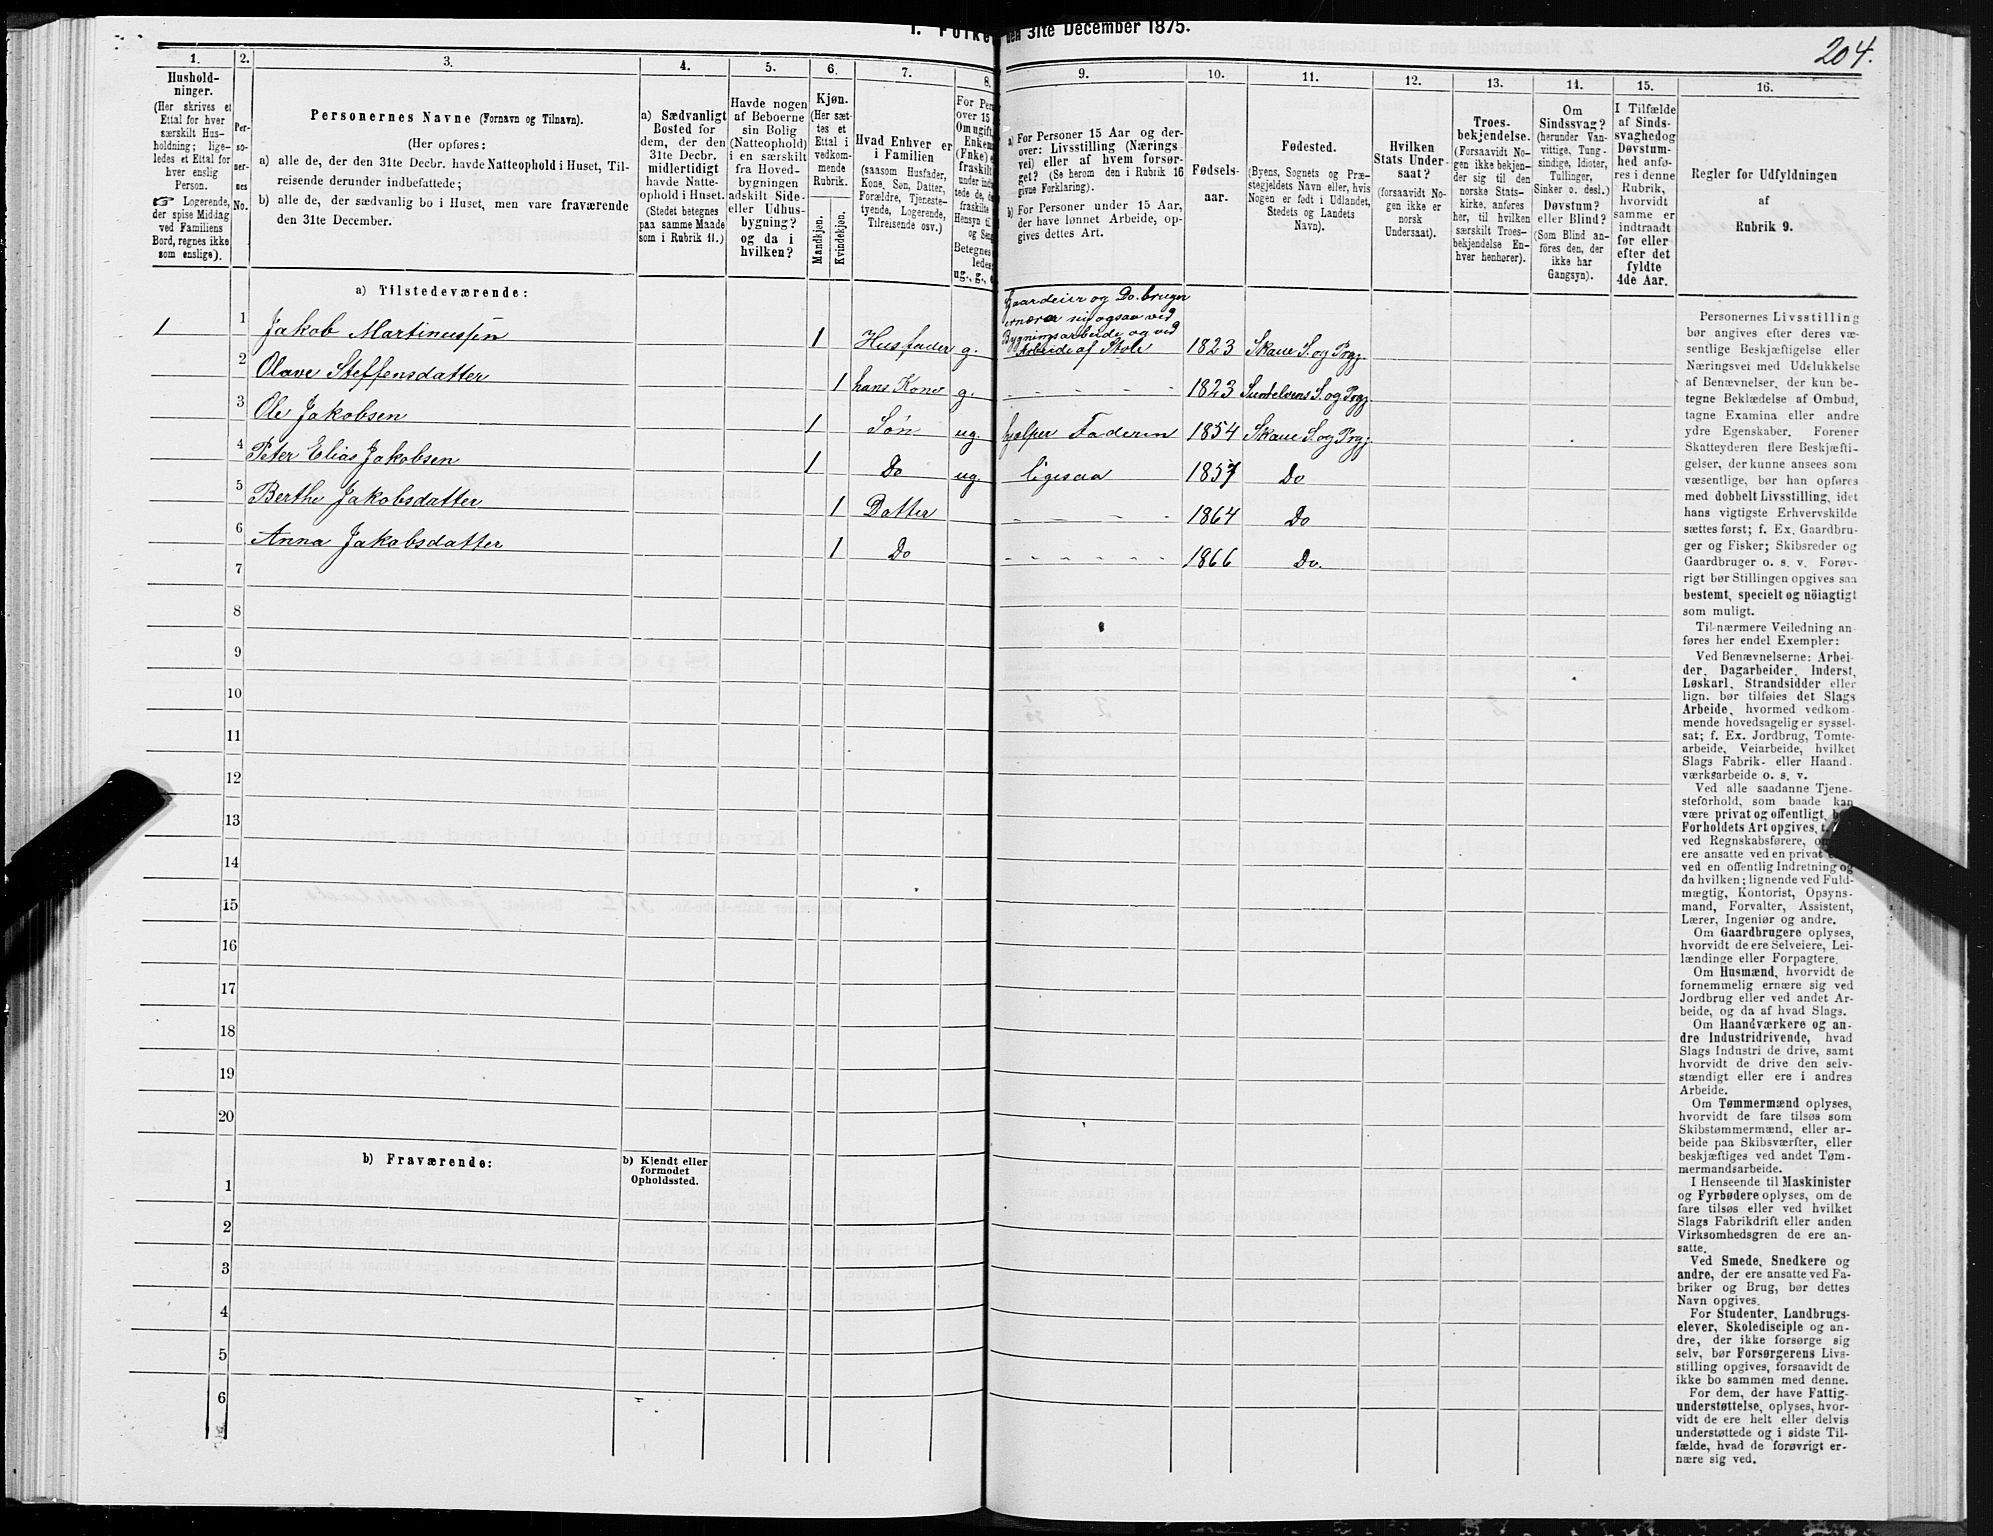 1. Folke
den 31te December 1875.
204.
1.
Hushold-
ninger.
(Her skrives et
Ettal for hver
særskilt Hus-
holdning; lige-
ledes et Ettal for
hver enslig
Person.
☞ Logerende,
der spise Middag
ved Familiens
Bord, regnes ikke
som enslige).
2.
Per-
so-
ner-
nes
No.
3.
Personernes Navne (Fornavn og Tilnavn).
(Her opføres:
a) alle de, der den 31te Decbr. havde Natteophold i Huset, Til-
reisende derunder indbefattede;
b) alle de, der sædvanlig bo i Huset, men vare fraværende
den 31te December.
4.
a) Sædvanligt
Bosted for
dem, der den
31te Decbr.
midlertidigt
havde Natte-
ophold i Huset.
(Stedet betegnes
paa samme Maade
som i Rubrik 11.)
5.
Havde nogen
af Beboerne
sin Bolig
(Natteophold)
i en særskilt
fra Hoved-
bygningen
adskilt Side-
eller Udhus-
bygning?
og da i
hvilken?
6.
Kjøn.
(Her sæt-
tes et
Ettal i
vedkom-
mende
Rubrik.
Mandkjøn.
Kvindekjøn.
7.
Hvad Enhver er
i Familien
(saasom Husfader,
Kone, Søn, Datter,
Forældre, Tjeneste-
tyende, Logerende,
Tilreisende osv.)
8.
For Per
over 15
Om ugift
Enkem
(Fnke) e
fraskilt
under indb
tede de, d
fraskilte
Hensyn ti
og Sen
Betegnes
ledes:
ug., g., e
9.
a) For Personer 15 Aar og der-
over: Livsstilling (Nærings-
vei) eller af hvem forsør-
get? (Se herom den i Rubrik 16
givne Forklaring).
b) For Personer under 15 Aar,
der have lønnet Arbeide, op-
gives dettes Art.
10.
Fødsels-
aar.
11.
Fødested.
(Byens, Sognets og Præ-
stegjeldets Navn eller, hvis
Nogen er født i Udlandet,
Stedets og Landets
Navn).
12.
Hvilken
Stats Under-
saat?
(forsaavidt No-
gen ikke er
norsk
Undersaat).
13.
Troes-
bekjendelse.
(Forsaavidt No-
gen ikke bekjen-
der sig til den
norske Stats-
kirke, anføres
her, til hvilken
særskilt Troes-
bekjendelse En-
hver henhører).
14.
Om
Sindssvag?
(herunder Van-
vittige, Tung-
sindige, Idioter,
Tullinger,
Sinker o. desl.)
Døvstum?
eller Blind?
(Som Blind an-
føres den, der
ikke har
Gangsyn).
15.
I Tilfælde
af Sinds-
svaghedog
Døvstum-
hed anfø-
res i denne
Rubrik,
hvorvidt
samme er
indtraadt
før eller
efter det
fyldte
4de Aar.
16.
Regler for Udfyldningen
af
Rubrik 9.
a) Tilstedeværende:
1 1 Jakob Martinussen 1 Husfader g. Gaardeier og Do. bruger ernærer sig ogsaa ved Bygningsarbeide og ved Arbeide af Stole 1823 Skaue S. og Prgj.
2 Olave Steffensdatter 1 hans Kone g. - - - - 1823 Suntelvens S. og Prgj.
3 Ole Jakobsen 1 Søn ug. hjælper Faderen 1854 Skaue S. og Prgj.
4 Peter Elias Jakobsen 1 Do ug. ligesaa 1857 Do
5 Berthe Jakobsdatter 1 Datter - - - - 1864 Do
6 Anna Jakobsdatter 1 Do - - - - - - 1866 Do.
7
8
9
10
11
12
13
14
15
16
17
18
19
20
b) Fraværende:
b) Kjendt eller
formodet
Opholdssted.
1
2
3
4
5
6
Personernes Livsstilling
bør angives efter deres væ-
sentlige Beskjæftigelse eller
Næringsvei med Udelukkelse
af Benævnelser, der kun be-
tegne Beklædelse af Ombud,
tagne Examina eller andre
ydre Egenskaber. Forener
Skatteyderen flere Beskjæfti-
gelser, der kunne ansees som
væsentlige, bør han opføres
med dobbelt Livsstilling, idet
hans vigtigste Erhvervskilde
sættes først; f. Ex. Gaardbru-
ger og Fisker; Skibsreder og
Gaardbruger o. s. v. Forøv-
rigt bør Stillingen opgives saa
bestemt, specielt og nöiagtigt
som muligt.
Til nærmere Veiledning an-
føres her endel Exempler:
Ved Benævnelserne: Arbei-
der, Dagarbeider, Inderst,
Løskarl, Strandsidder eller
lign. bør tilføies det Slags
Arbeide, hvormed vedkom-
mende hovedsagelig er syssel-
sat; f. Ex. Jordbrug, Tomte-
arbeide, Veiarbeide, hvilket
Slags Fabrik- eller Haand-
værksarbeide o. s. v.
Ved alle saadanne Tjene-
steforhold, som baade kan
være privat og offentligt, b
Forholdets Art opgives, t.
ved Regnskabsførere, om
ere ansatte ved en privat e
ved en offentlig Indretning og
da hvilken; lignende ved Fuld-
mægtig, Kontorist, Opsyns-
mand, Forvalter, Assistent,
Lærer, Ingeniør og andre.
Om Gaardbrugere oplyses,
hvorvidt de ere Selveiere, Lei-
lændinge eller Forpagtere.
Om Husmænd, hvorvidt de
fornemmelig ernære sig ved
Jordbrug eller ved andet Ar-
beide, og da af hvad Slags.
Om Haandværkere og an-
dre Industridrivende, hvad
Slags Industri de drive, samt
hvorvidt de drive den selv-
stændigt eller ere i andres
Arbeide.
Om Tømmermænd oplyses,
hvorvidt de fare tilsøs som
Skibstømmermænd, eller ar-
beide paa Skibsværfter, eller
beskjæftiges ved andet Tøm-
mermandsarbeide.
I Henseende til Maskinister
og Fyrbødere oplyses, om de
fare tilsøs eller ved hvilket
Slags Fabrikdrift eller anden
Virksomhedsgren de ere an-
satte.
Ved Smede, Snedkere og
andre, der ere ansatte ved Fa-
briker og Brug, bør dettes
Navn opgives.
For Studenter, Landbrugs-
elever, Skoledisciple og an-
dre, der ikke forsørge sig
selv, bør Forsørgerens Livs-
stilling opgives, forsaavidt de
ikke bo sammen med denne.
For dem, der have Fattig-
understøttelse, oplyses, hvor-
vidt de ere helt eller delvis
understøttede og i sidste Til-
fælde, hvad de forøvrigt er-
nære sig ved.